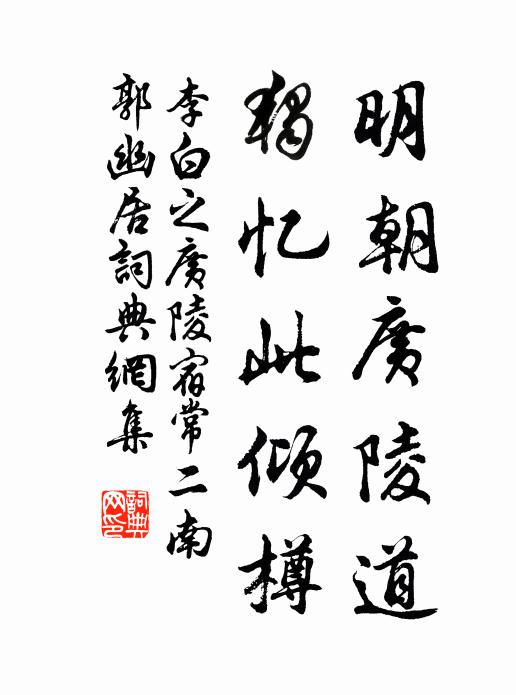 明朝廣陵道
獨忆此倾樽
李白之廣陵宿常二南
郭幽居詞典網集
詞典網印